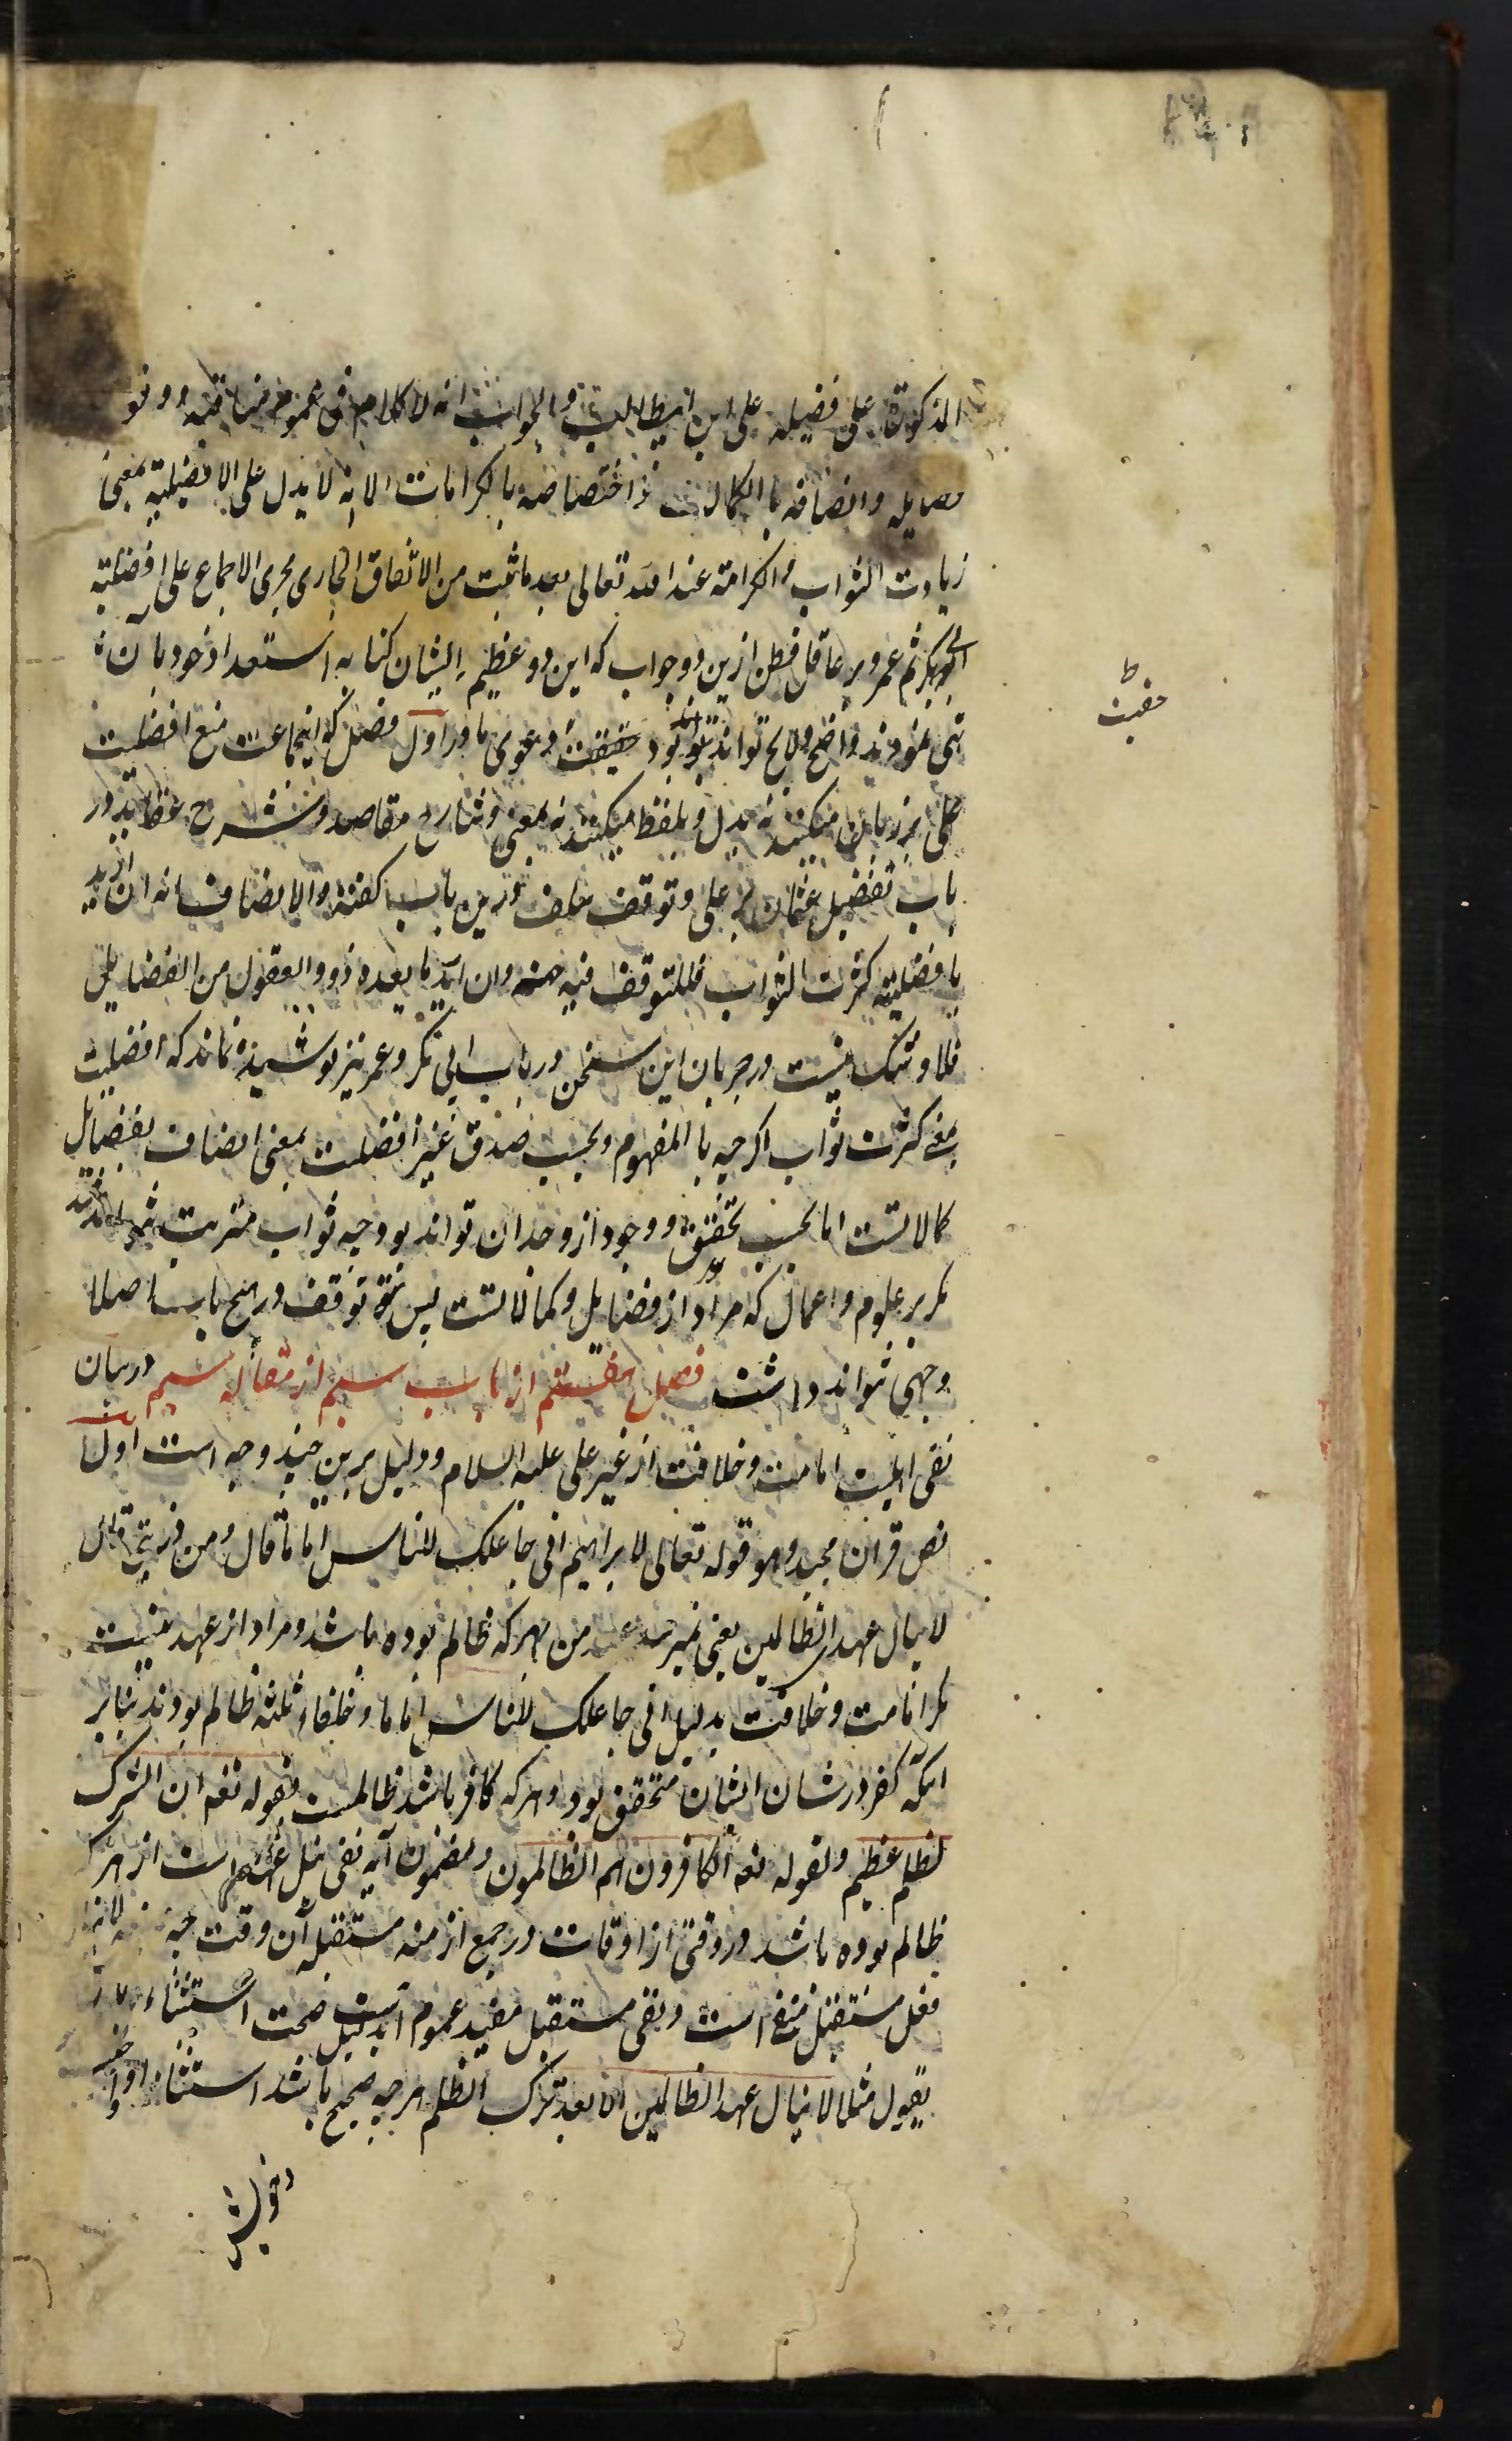 المذكورة على فضيله على ابن ابیطالب والجواب انه لا كلام فى عموم مناقبه ووفو
فضايله واتصافه باالكمالات و اختصاصه بالكرامات الا انه لا يدل على الافضيلته بمعنى
زيادت الثواب والكرامة عند الله تعالى بعد ما ثبت من الاتفاق الجارى مجرى الاجماع على افضليته
ابى بكر ثم عمر و بر عاقل فطن ازین دو جواب که این دو عظیم الشان کتاب استعداد خود بان
نمودند واضح ولایح تواند بود حقیقت دعوی ما در اول فصل که اینجماعت منع افضلیت
على بر زبان میکنند نه بدل و بلفظ میکنند نه بمعنى و شارح مقاصد و شرح عقاید در
باب تفضیل عثمان بر على و توقف سلف درین باب گفته والانصاف انه ان اريد
بافضليته كثرت الثواب فللتوقف فيه جهته وان اريد ما يعده ذووالعقول من الفضايل
فلا و شک نیست در جریان این سخن در باب ابی بکر و عمر نیز پوشیده نماند که افضلیت
بمعنى کثرت ثواب اگرچه باالمفهوم و بحسب صدق غیر افضلیت بمعنى اتصاف بفضایل
کمالاتست اما بحسب تحقق و وجود از و جدا نتواند بود چه ثواب مترتب نتواند شد
مگر بر علوم و اعمال که مراد از فضایل و کمالاتست پس توقف در هیچ باب اصلا
وجهى نتواند داشت فصل هفتم از باب سیم از مقاله سیم در بیان
نفی اهلیت امامت و خلافت از غیر علی علیه السلام و دلیل برین چند وجه است اول
نص قرآن مجید و هو قوله تعالى لابراهيم انى جاعلك للناس اماما قال ومن ذريتى قال
لا ينال عهدى الظالمين یعنی نمیرسد عهد من بهر که ظالم بوده باشد و مراد از عهد نیست
مگر امامت و خلافت بدلیل انى جاعلك للناس اماما و خلفاء ثلثه ظالم بودند بنابر
آنکه کفر در شان ایشان متحقق بود و هر که کافر باشد ظالمست بقوله تعه ان الشرك
لظلم عظيم و بقوله تعه الكافرون هم الظالمون و مضمون آیه نفی نیل عهد است از هر که
ظالم بوده باشد در وقتی از اوقات در جمیع ازمنه مستقبله آن وقت چه لا ینال
فعل مستقبل منفی است و نفی مستقبل مفید عموم است بدلیل صحت استثناء
بقول مثلا لا ينال عهد الظالمين الا بعد ترك الظلم هر چه صحیح باشد استثناء او